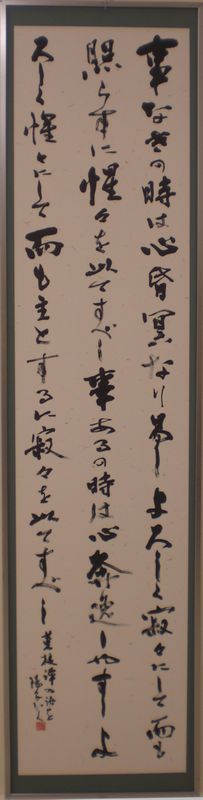 事なきの時は心昏冥なり易しよろしく寂々にして而も
照らすに惺々を以てすべし事あるの時は心奔逸しやすしよ
ろしく惺々にして而も主とするに寂々を以てすべし
菜根譚の語を